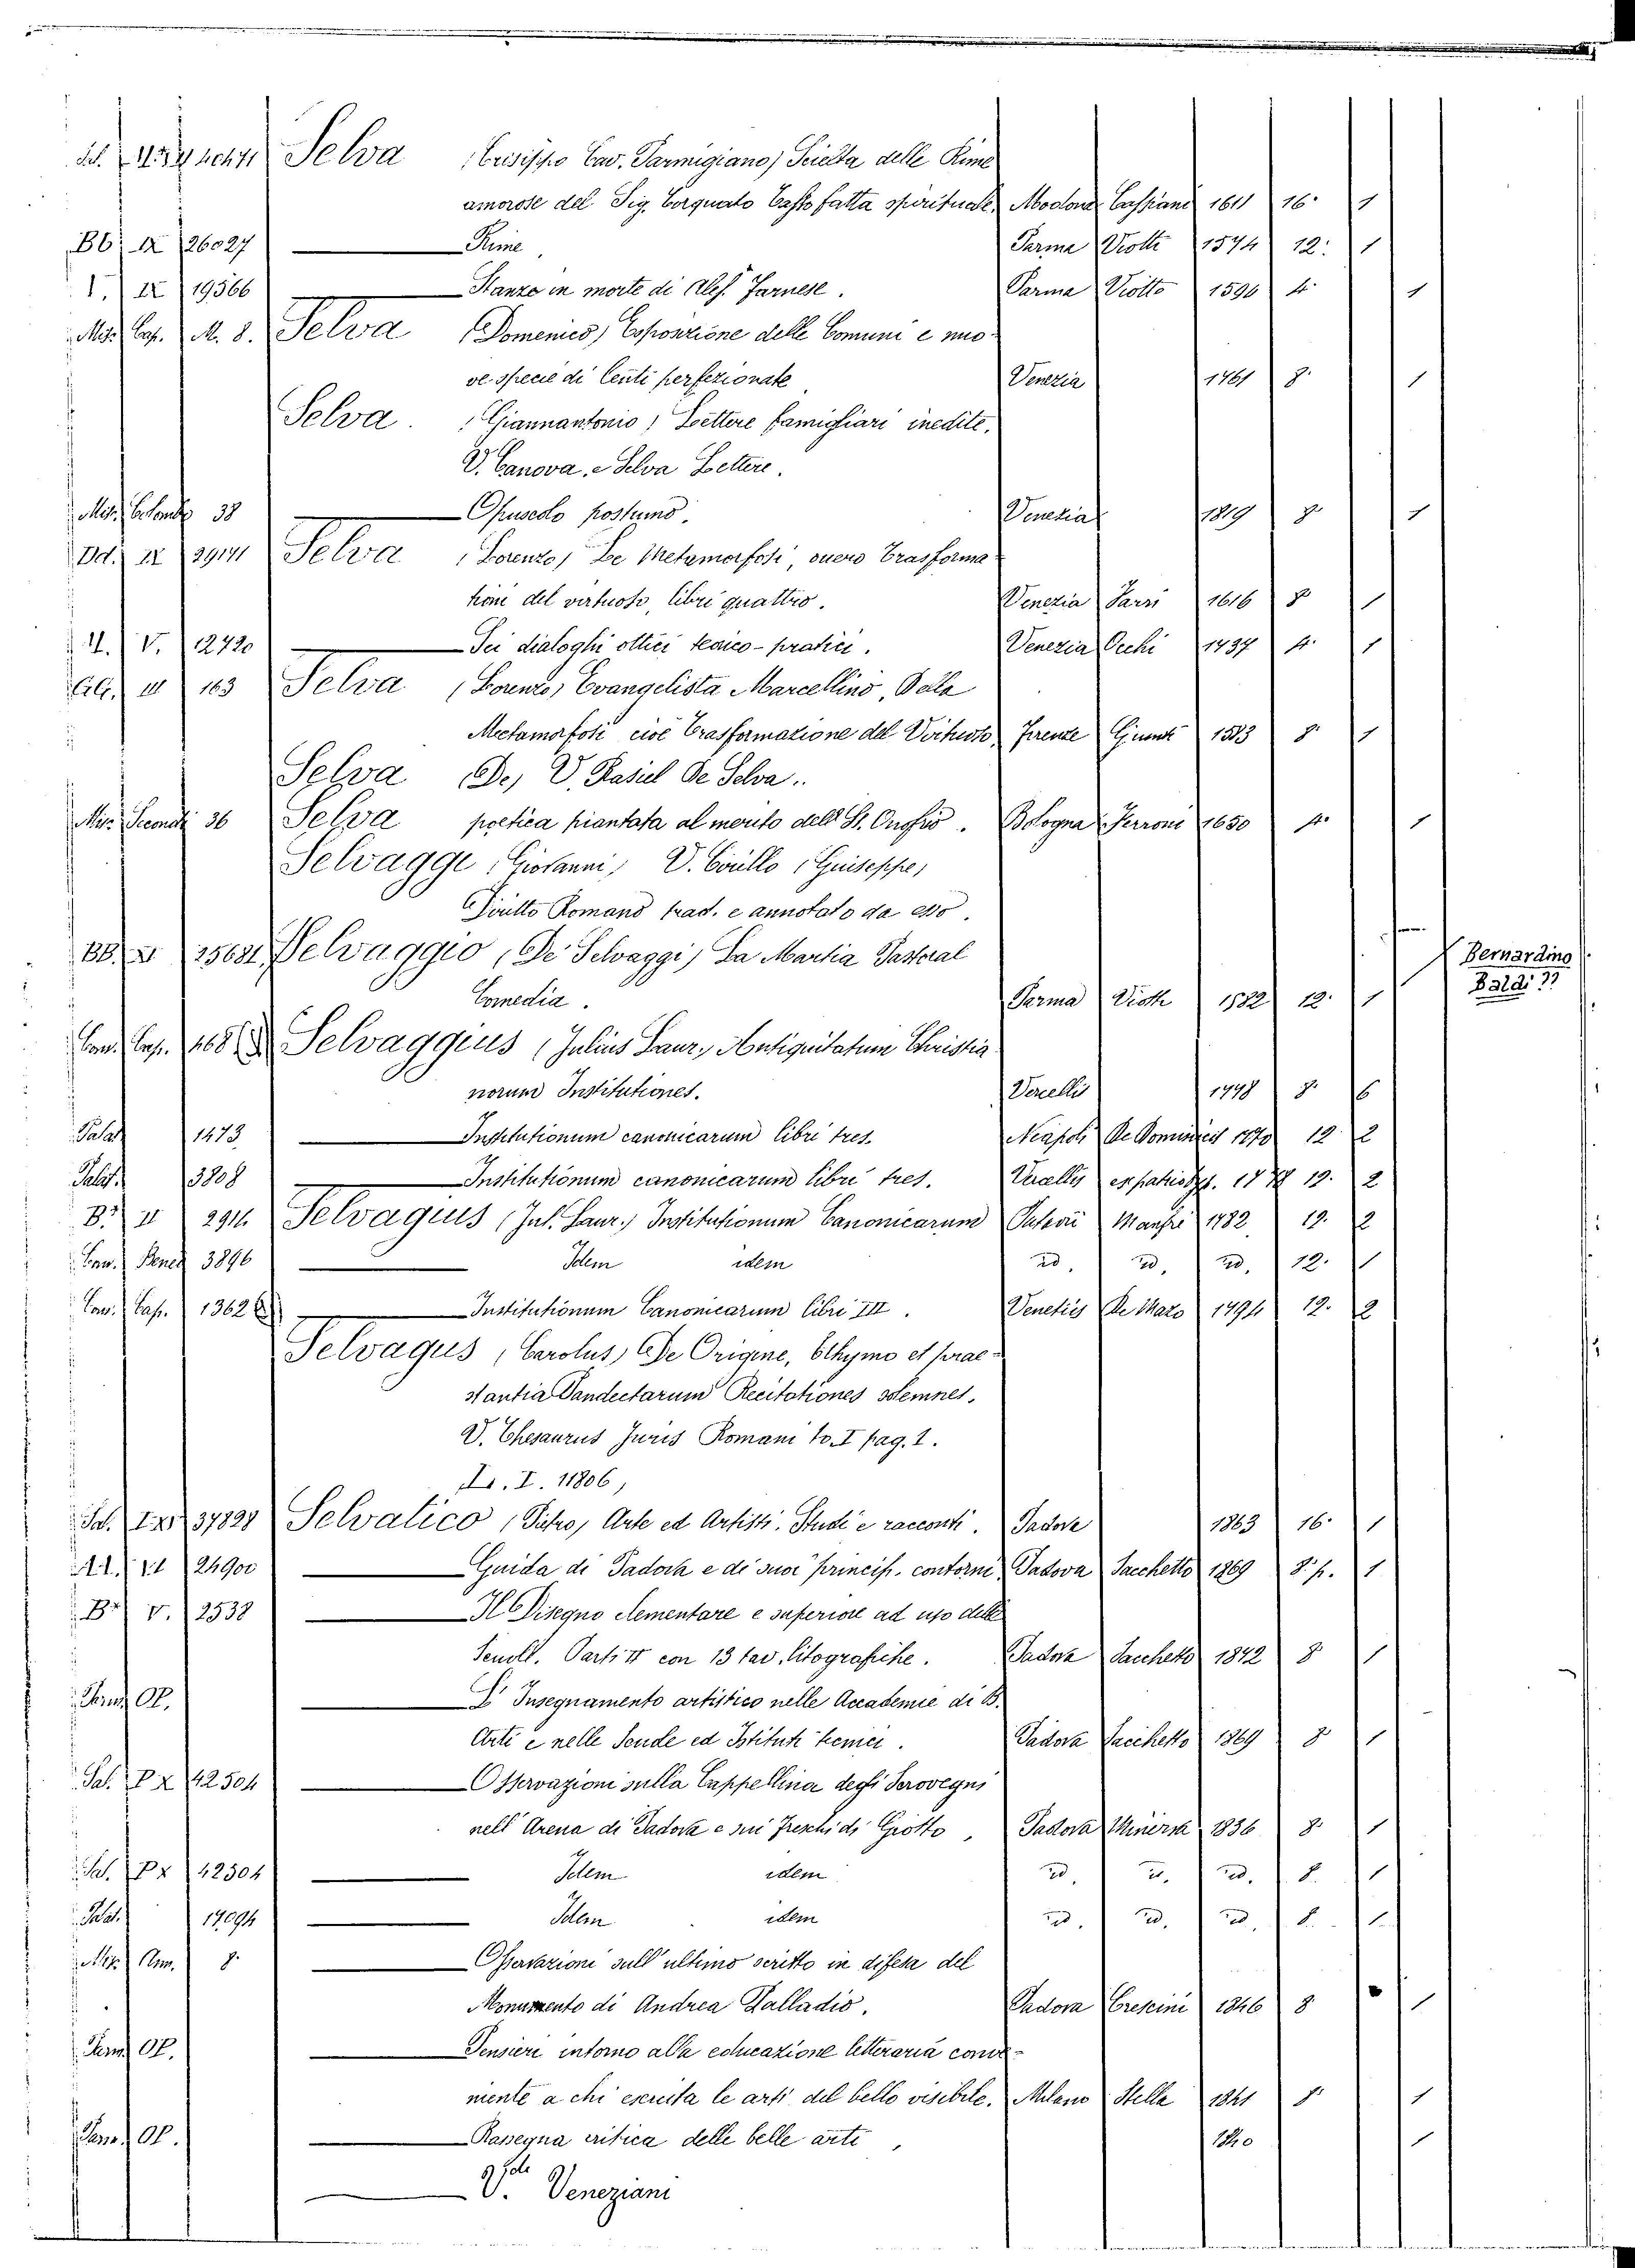 Selva (Crisippo Cav. Parmigiano) Scielta delle Rime
amorose del Sig. Torquato Tasso fatta spirituale, Modona Cassiani 1611 16. 1
BB. IX 26027 Rime Parma Viotti 1574 12. 1
IX 19566 Stanze in morte di Ales. Farnese. Parma Viotto 1590 4. 1
Mis. Cap. M. 8. Selva (Domenico) Esposizione delle Comuni e nuo-
ve specie di Centi perfezionate Venezia 1761 8. 1
Selva. (Giannantonio) Lettere famigliari inedite.
V. Canova. e Selva Lettere.
Mis. Colomb. 38 Opuscolo postumo. Venezia 1819 8. 1
IX 29141 Selva (Lorenzo) Le Metamorfosi, overo Trasforma-
tioni del virtuoso, libri quattro. Venezia Sarzi 1616 8 1
V. 12720 Sei dialoghi ottici teorico-pratici. Venezia Occhi 1737 4. 1
III 163 Selva (Lorenzo) Evangelista Marcellino, Della
Metamorfosi cioè Trasformazione del Virtuoso, Firenze Giunti 1583 8. 1
Selva (De) V. Rasiel De Selva..
Mis. Secondi 36 Selva poetica piantata al merito dell St. Onofrio. Bologna Ferroni 1650 4. 1
Selvaggi (Giovanni) V. Cirillo (Guiseppe)
Diritto Romano trad. e annotato da esso.
BB. XI 25621 Selvaggio (De' Selvaggi) La Martia Pastoral
Comedia. Parma Viotti 1582 12. 1
Bernardino
Baldi ??
Con. Cap. 468 Selvaggius (Julius Laur.) Antiquitatum Christia-
norum Institutiones. Vercellis 1778 8. 6
Palat. 1473 Institutionum canonicarum libri tres. Neapoli De Dominicis 1770 12. 2
Palat. 3808 Institutionum canonicarum libri tres. Vercellis ex patrio typ. 1778 12. 2
B. II 2914 Selvagius (Jul. Laur.) Institutionum Canonicarum Patavii Manfrè 1782 12. 2
Con. Bened 3896 Idem idem id. id. id. 12. 1
Con. Cap. 1362 Institutionum Canonicarum libri III. Venetiis De Mazo 1794 12. 2
Selvagus (Carolus) De Origine, Ethymo et prae-
stantia Pandectarum Recitationes solemnes.
V. Thesaurus Juris Romani to. I pag. 1.
I. 11806,
Sal. 37828 Selvatico (Pietro) Arte ed Artisti. Studi e racconti. Padova 1863 16. 1
24900 Guida di Padova e di suoi princip. contorni, Padova Sacchetto 1869 8. p. 1
V. 2538 Il Disegno elementare e superiore ad uso delle
Scuole. Parti II con 13 tav. litografiche. Padova Sacchetto 1842 8 1
OP. L' Insegnamento artistico nelle Accademie di B.
Arti e nelle Scuole ed Istituti tecnici. Padova Sacchetto 1869 8 1
Sal. P X 42504 Osservazioni sulla Cappellina degli Scrovegni
nell' Arena di Padova e sui freschi di Giotto, Padova Minerva 1836 8. 1
Sal. P X 42504 Idem idem id. id. id. 8. 1
Palat. 17094 Idem idem id. id. id. 8. 1
Mis. Ann. 8. Osservazioni sull' ultimo scritto in difesa del
Monumento di Andrea Palladio. Padova Crescini 1846 8 1
OP. Pensieri intorno alla educazione letteraria conve-
niente a chi esercita le arti del bello visibile. Milano Stella 1841 8. 1
OP. Rassegna critica delle belle arti, 1840 1
V. Veneziani